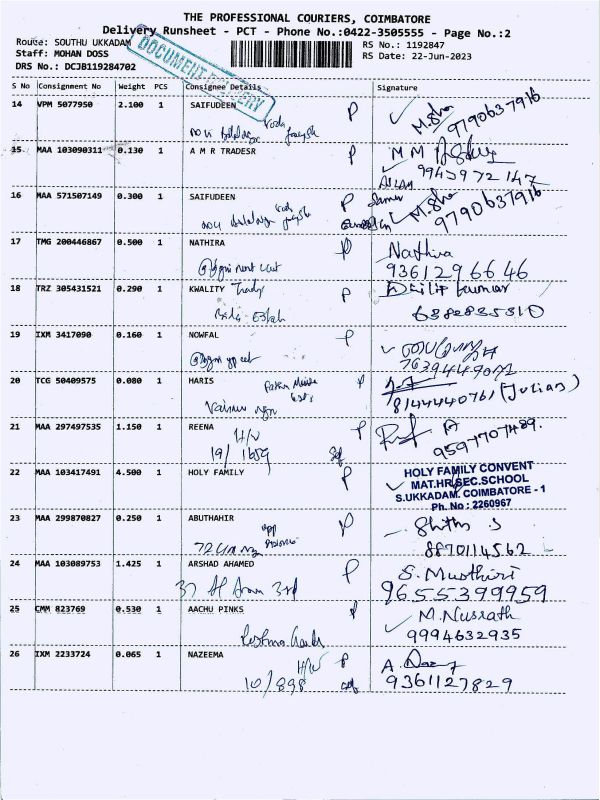 THE PROFESSIONAL COURIERS, COIMBATORE
Delivery Runsheet - PCT - Phone No.:0422-3505555 - Page No.:2
Route: SOUTHU UKKADAM
RS No.: 1192847
Staff: MOHAN DOSS
RS Date: 22-Jun-2023
DRS No.: DCJB119284702
DOCUMENT DELIVERY
S No Consignment No Weight PCS Consignee Details Signature
14 VPM 5077950 2.100 1 SAIFUDEEN P M.sha
9790637916
15 MAA 103090311 0.130 1 A M R TRADESR P
9943972147
16 MAA 571507149 0.300 1 SAIFUDEEN P M.sha
9790637916
17 TMG 200446867 0.500 1 NATHIRA P Nathira
9361296646
18 TRZ 305431521 0.290 1 KWALITY Trady P Dilip kumar
6382835310
19 IXM 3417090 0.160 1 NOWFAL P
7639449072
20 TCG 50409575 0.080 1 HARIS P
8144440761 (Julian)
21 MAA 297497535 1.150 1 REENA H/U P
19/1659 9597707489.
22 MAA 103417491 4.500 1 HOLY FAMILY P HOLY FAMILY CONVENT
MAT.HR.SEC.SCHOOL
S.UKKADAM. COIMBATORE - 1
Ph. No : 2260967
23 MAA 299870827 0.250 1 ABUTHAHIR P
8870114562
24 MAA 103089753 1.425 1 ARSHAD AHAMED P S. Musthiri
37 3rd 9655399959
25 CMM 823769 0.530 1 AACHU PINKS P M. Nusrath
9994632935
26 IXM 2233724 0.065 1 NAZEEMA H/U P
10/898 9361127829